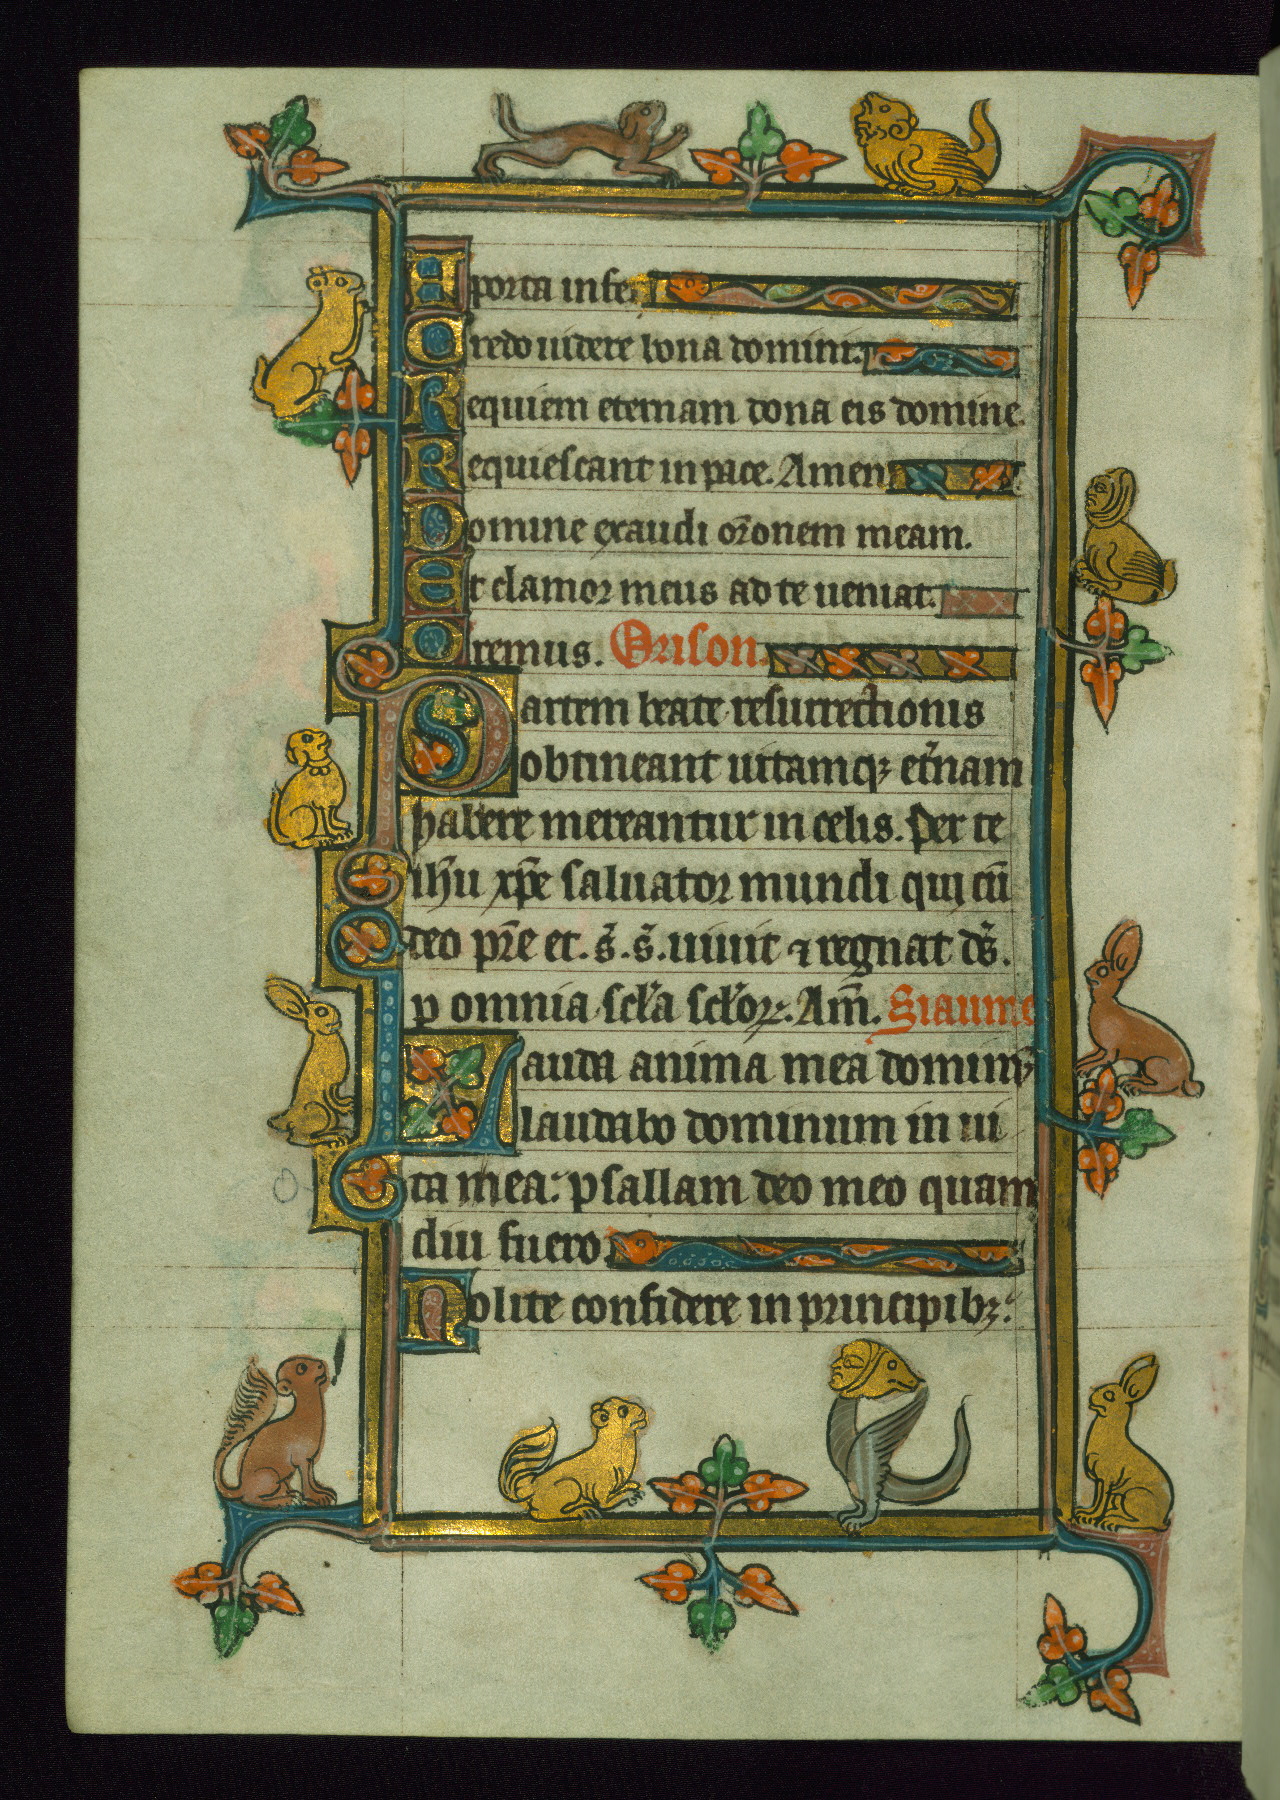 A porta infe
Credo uidere bona domini.
Requiem eternam dona eis domine.
Requiescant in pace. Amen
Domine exaudi or̄onem meam.
Et clamor meus ad te ueniat.
Oremus. Orison.
Partem beate resurrectionis
obtineant uitamqꝫ et̄nam
habere mereantur in celis. Per te
ih̄u xp̄e saluator mundi qui cū
deo pr̄e et. s̄. s̄. uiuit ⁊ regnat ds̄.
p omnia scl̄a scl̄oꝝ. Am̄. Siaume
Lauda anima mea dominū
laudabo dominum in ui
ta mea: psallam deo meo quam
diu fuero
Nolite confidere in principibꝫ: